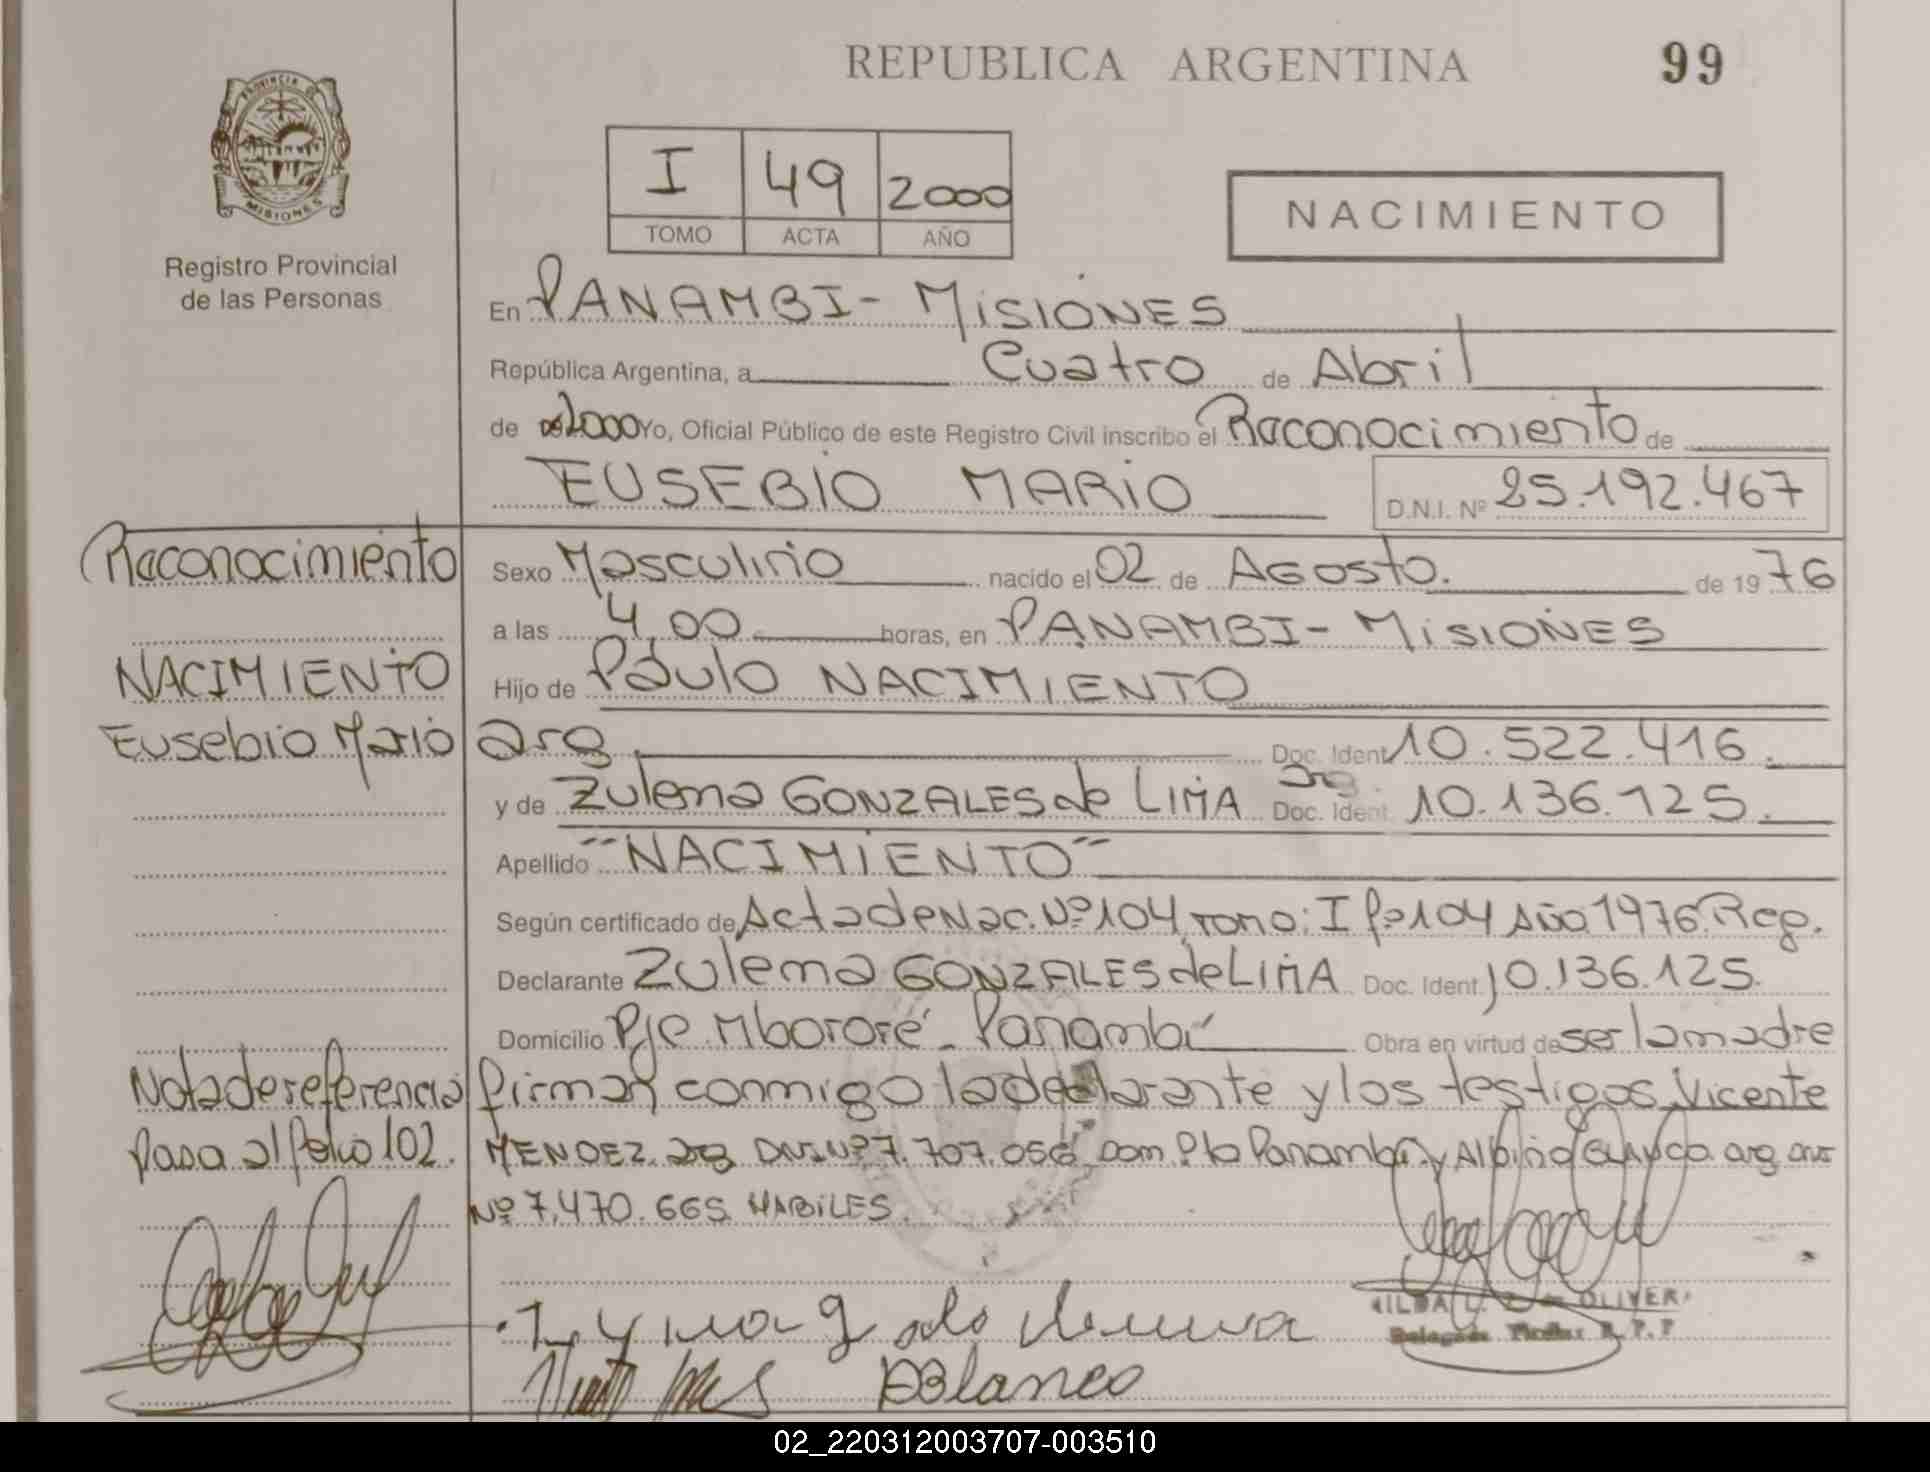 REPUBLICA ARGENTINA
99
PROVINCIA DE
MISIONES
Registro Provincial
de las Personas
I 49 2000
TOMO ACTA AÑO
NACIMIENTO
En PANAMBI - MISIONES
República Argentina, a Cuatro de Abril
de 2000 Yo, Oficial Público de este Registro Civil inscribo el Reconocimiento de
EUSEBIO MARIO D.N.I. Nº 25.192.467
Reconocimiento
NACIMIENTO
Eusebio Mario
Sexo Masculino nacido el 02 de Agosto. de 19 76
a las 4,00 horas, en PANAMBI - MISIONES
Hijo de Paulo NACIMIENTO
arg. Doc. Ident 10.522.416.
y de Zulema GONZALES de LIMA arg. Doc. Ident. 10.136.125.
Apellido "NACIMIENTO"
Según certificado de Acta de Nac. Nº 104, Tomo: I fº 104 Año 1976 Reg.
Declarante Zulema GONZALES de LIMA Doc. Ident. 10.136.125.
Domicilio Pje Mbororé - Panambí Obra en virtud de ser la madre
Nota de referencia
pasa al folio 102.
firman conmigo la declarante y los testigos Vicente
MENDEZ. arg DNI Nº 7.707.056, Dom. Pto Panambí y Albino arg. DNI
Nº 7.470.665. HABILES.
Blanco
HILDA L. Z. de OLIVERA
Delegada Titular R. P. P
02_220312003707-003510